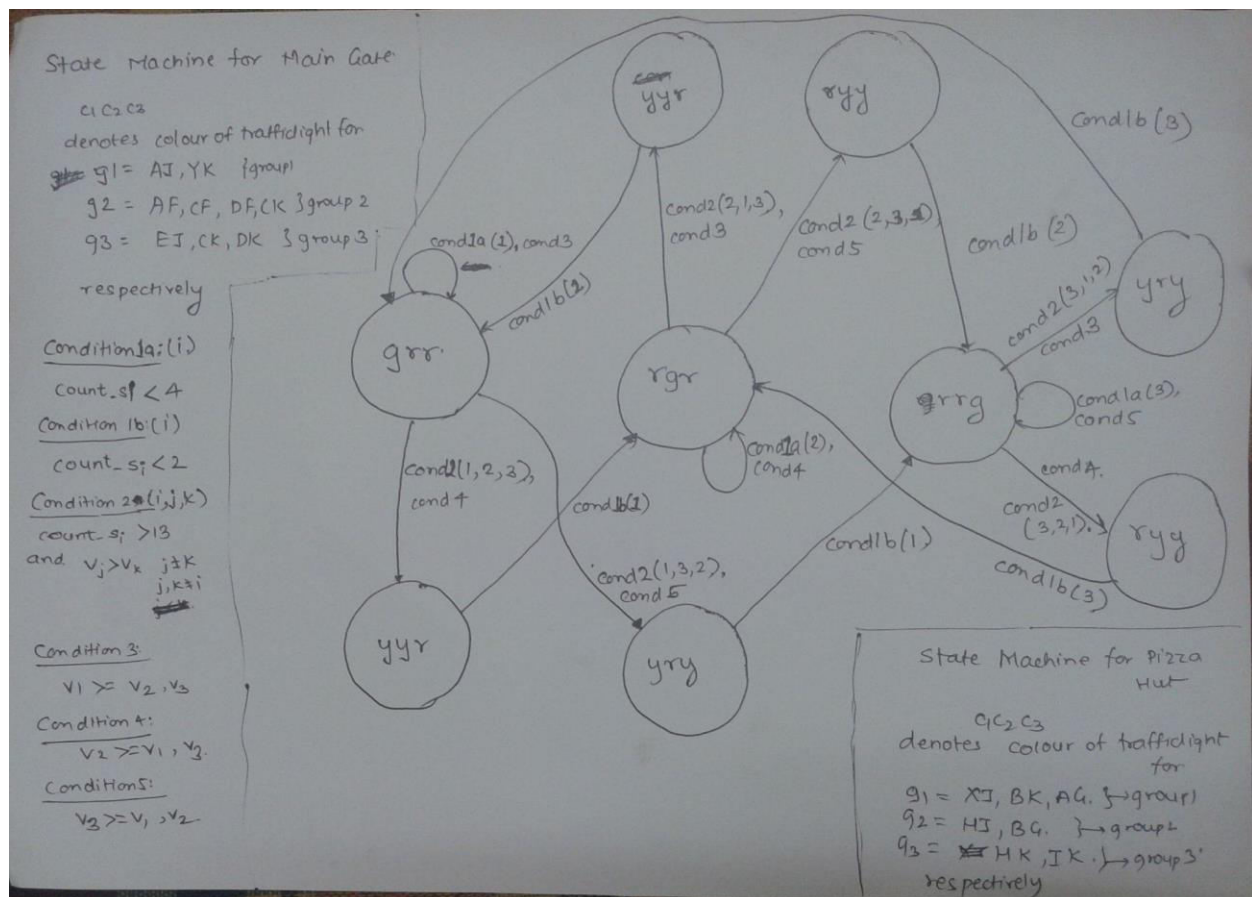 State Machine for Main Gate
C1 C2 C3
denotes colour of trafficlight for
g1 = AJ, YK }group1
g2 = AF, CF, DF, CK }group 2
g3 = EJ, CK, DK } group 3
respectively
Condition1a:(i)
count_si < 4
Condition 1b:(i)
count_si < 2
Condition 2 (i,j,k)
count_si >13
and vj>vk j≠k
j,k≠i
Condition 3:
v1 >= v2, v3
Condition 4:
v2 >= v1, v3.
Condition5:
v3 >= v1, v2.
yyr
ryy
cond1b(3)
cond2(2,1,3),
cond3
cond2(2,3,1)
cond5
cond1b(2)
cond1a(1), cond3
cond1b(2)
cond2(3,1,2)
cond3
yry
grr
rgr
rrg
cond1a(3),
cond5
cond1a(2),
cond4
cond2(1,2,3),
cond4
cond1b(1)
cond4.
cond2
(3,2,1).
ryy
cond1b(1)
cond1b(3)
cond2(1,3,2),
cond5
yyr
yry
State Machine for Pizza
Hut
C1C2C3
denotes colour of trafficlight
for
g1 = XJ, BK, AG. }→group1
g2 = HJ, BG. }→group2
g3 = HK, IK. }→group3
respectively